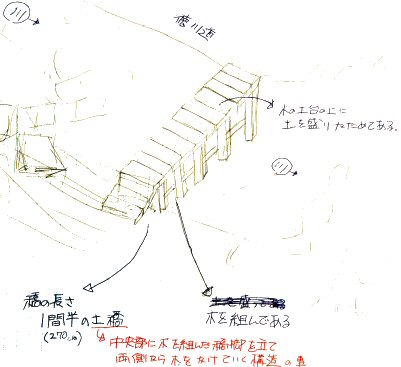 川
徳川道
木の土台の上に
土を盛りかためてある。
川
橋の長さ
1間半の土橋
(270cm)
木を組んである
中央部に木を組んだ橋脚を立て
両側から木をかけていく構造の